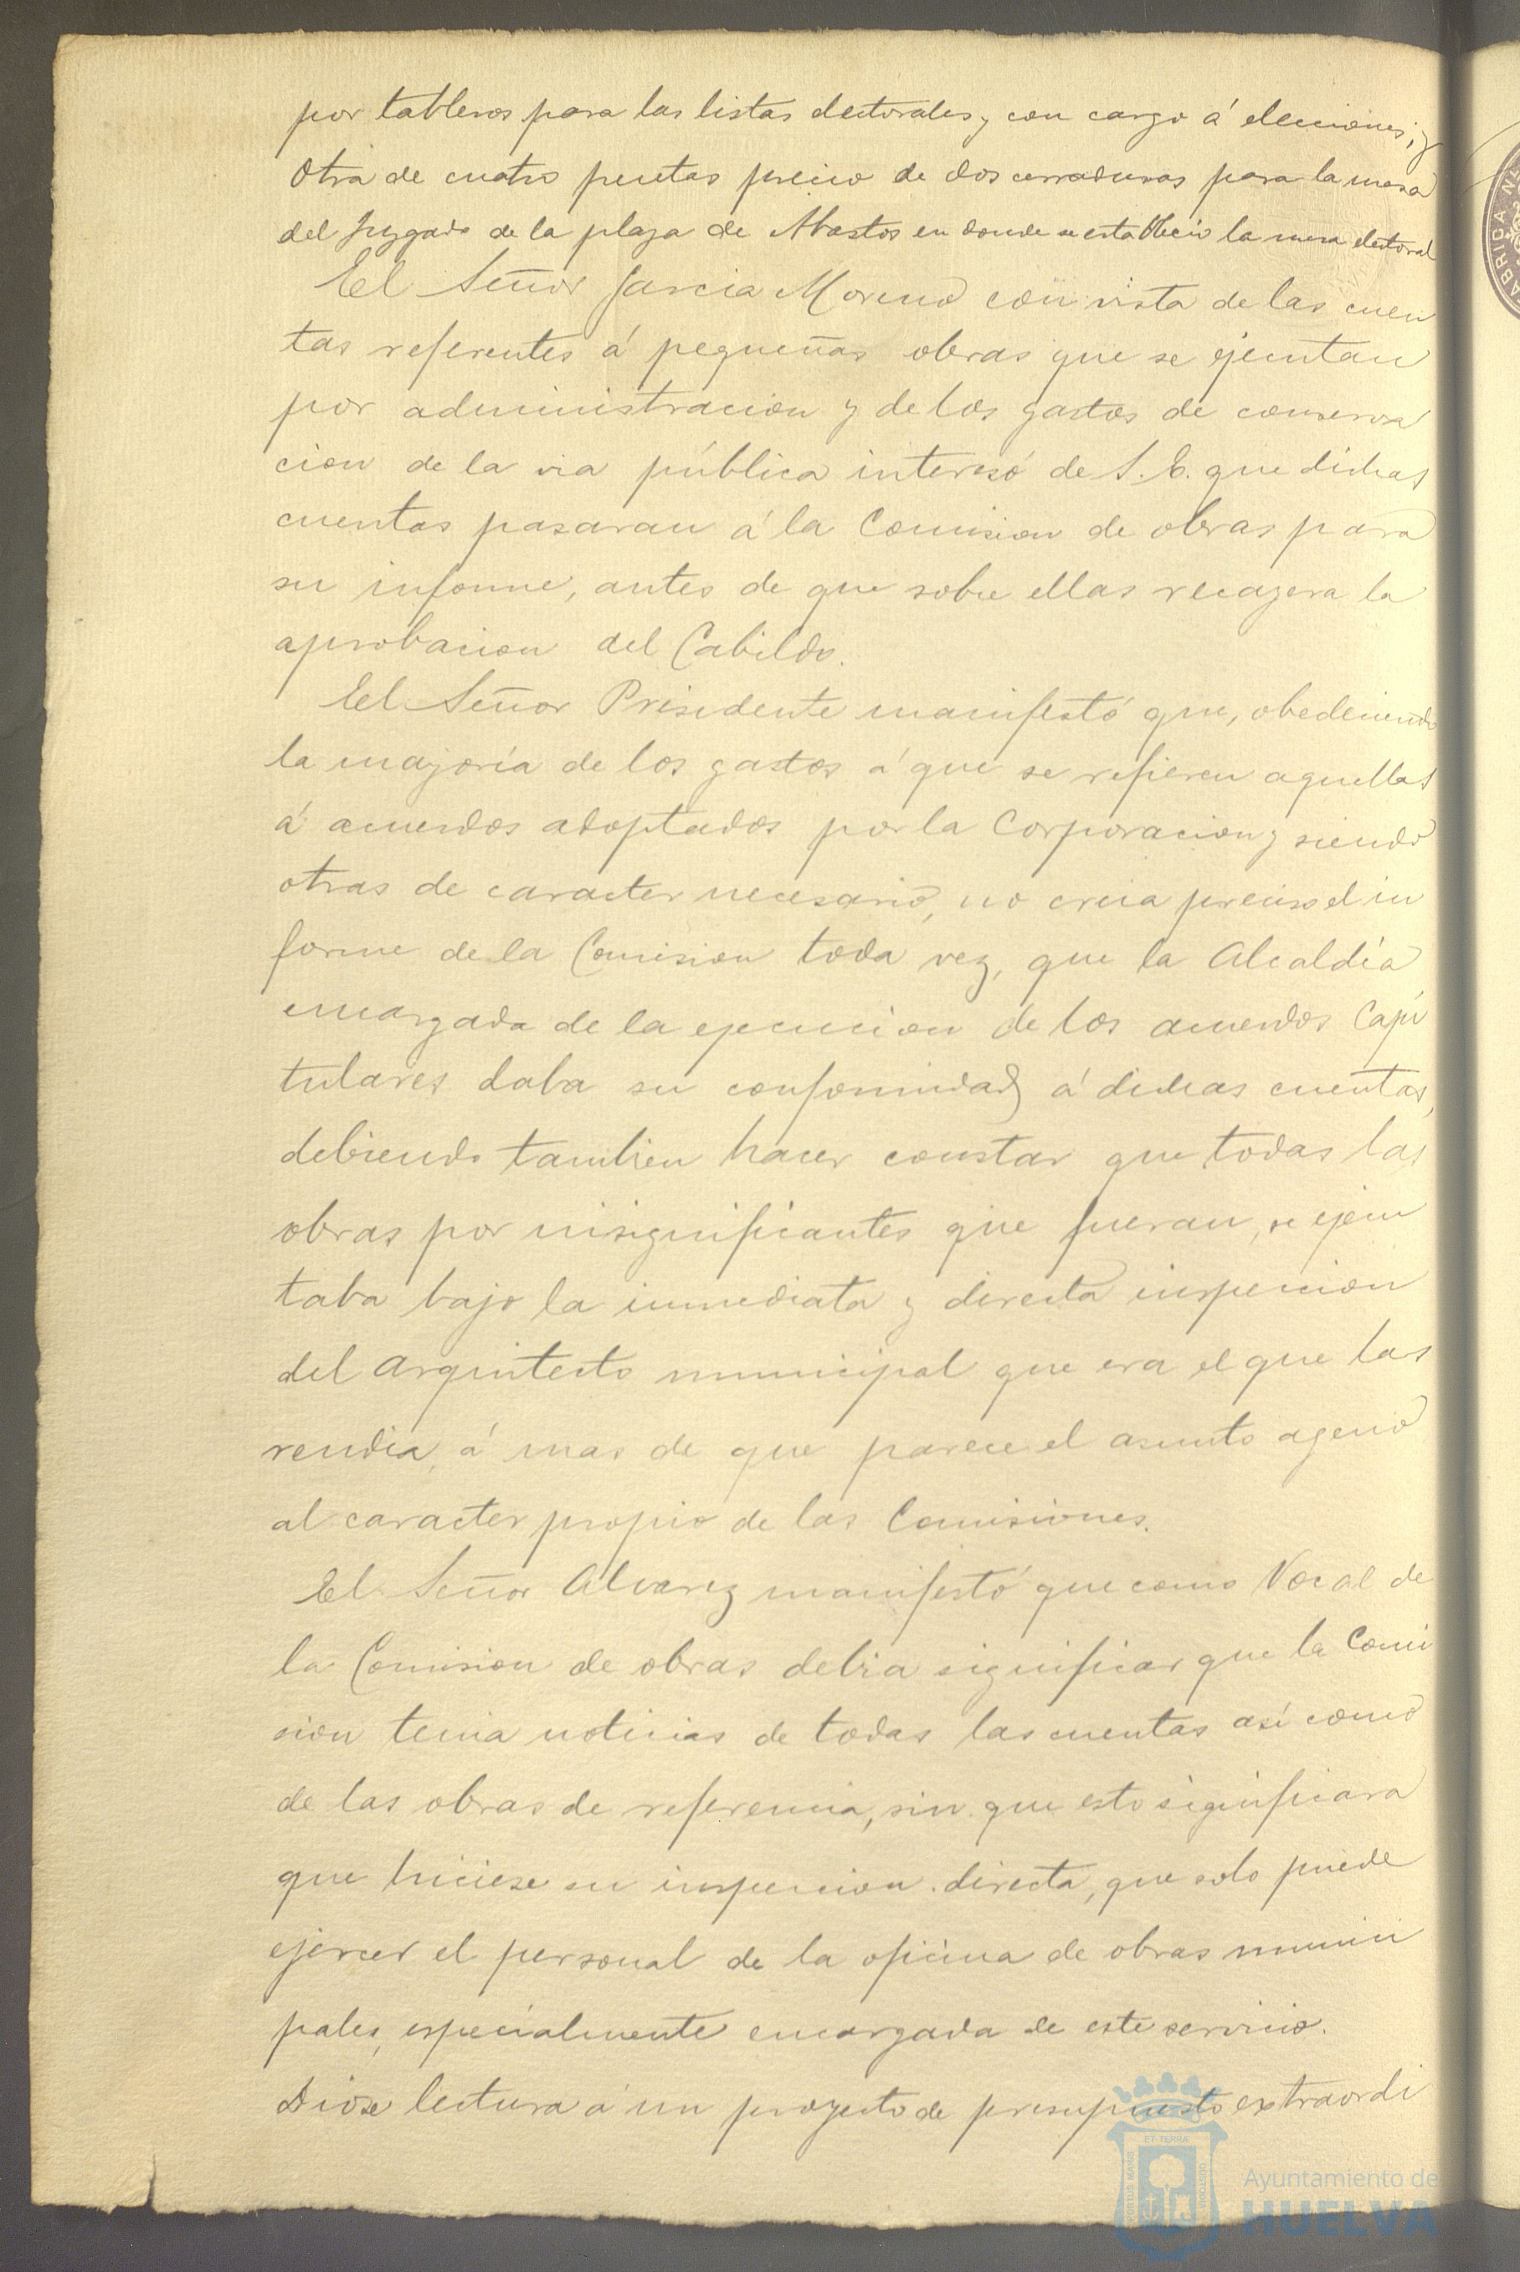 por tableros para las listas electorales y con cargo á elecciones; y
otra de cuatro pesetas precio de dos cerraduras para la mesa
del Juzgado de la plaza de Abastos en donde se estableció la mesa electoral
El Señor Garcia Moreno con vista de las cuen
tas referentes á pequeñas obras que se ejecutan
por administracion y de los gastos de conserva
cion de la via pública interesó de S. E. que dichas
cuentas pasaran á la Comision de obras para
su informe, antes de que sobre ellas recayera la
aprobacion del Cabildo.
El Señor Presidente manifestó que, obedeciendo
la mayoría de los gastos á que se refieren aquellas
á acuerdos adoptados por la Corporacion y siendo
otras de caracter necesario, no creia preciso el in
forme de la Comision toda vez, que la Alcaldía
encargada de la ejecucion de los acuerdos Capi
tulares daba su conformidad á dichas cuentas,
debiendo tambien hacer constar que todas las
obras por insignificantes que fueran, se ejecu
taba bajo la inmediata y directa inspeccion
del Arquitecto municipal que era el que las
rendia, á mas de que parece el asunto ageno
al caracter propio de las Comisiones.
El Señor Alvarez manifestó que como Vocal de
la Comision de obras debia significar que la Comi
sion tenia noticias de todas las cuentas así como
de las obras de referencia, sin que esto significara
que hiciese su inspeccion directa, que solo puede
ejercer el personal de la oficina de obras munici
pales, especialmente encargada de este servicio.
Diose lectura á un proyecto de presupuesto extraordi
Ayuntamiento de
HUELVA